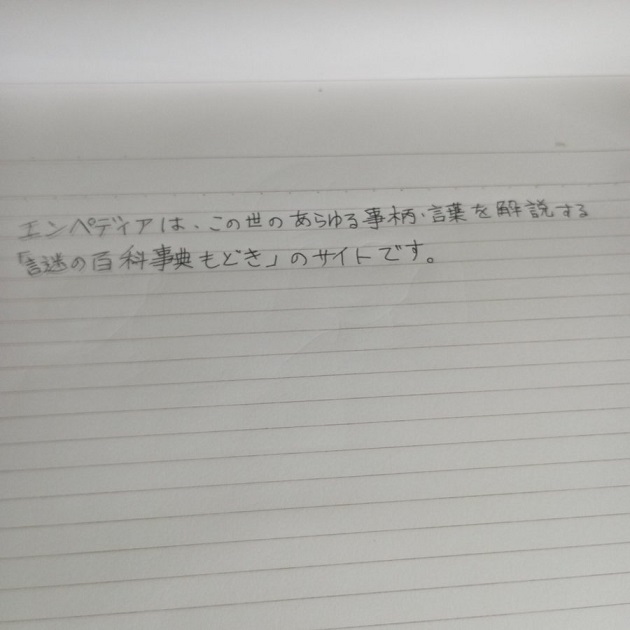 エンペディアは、この世のあらゆる事柄・言葉を解説する
「謎の百科事典もどき」のサイトです。